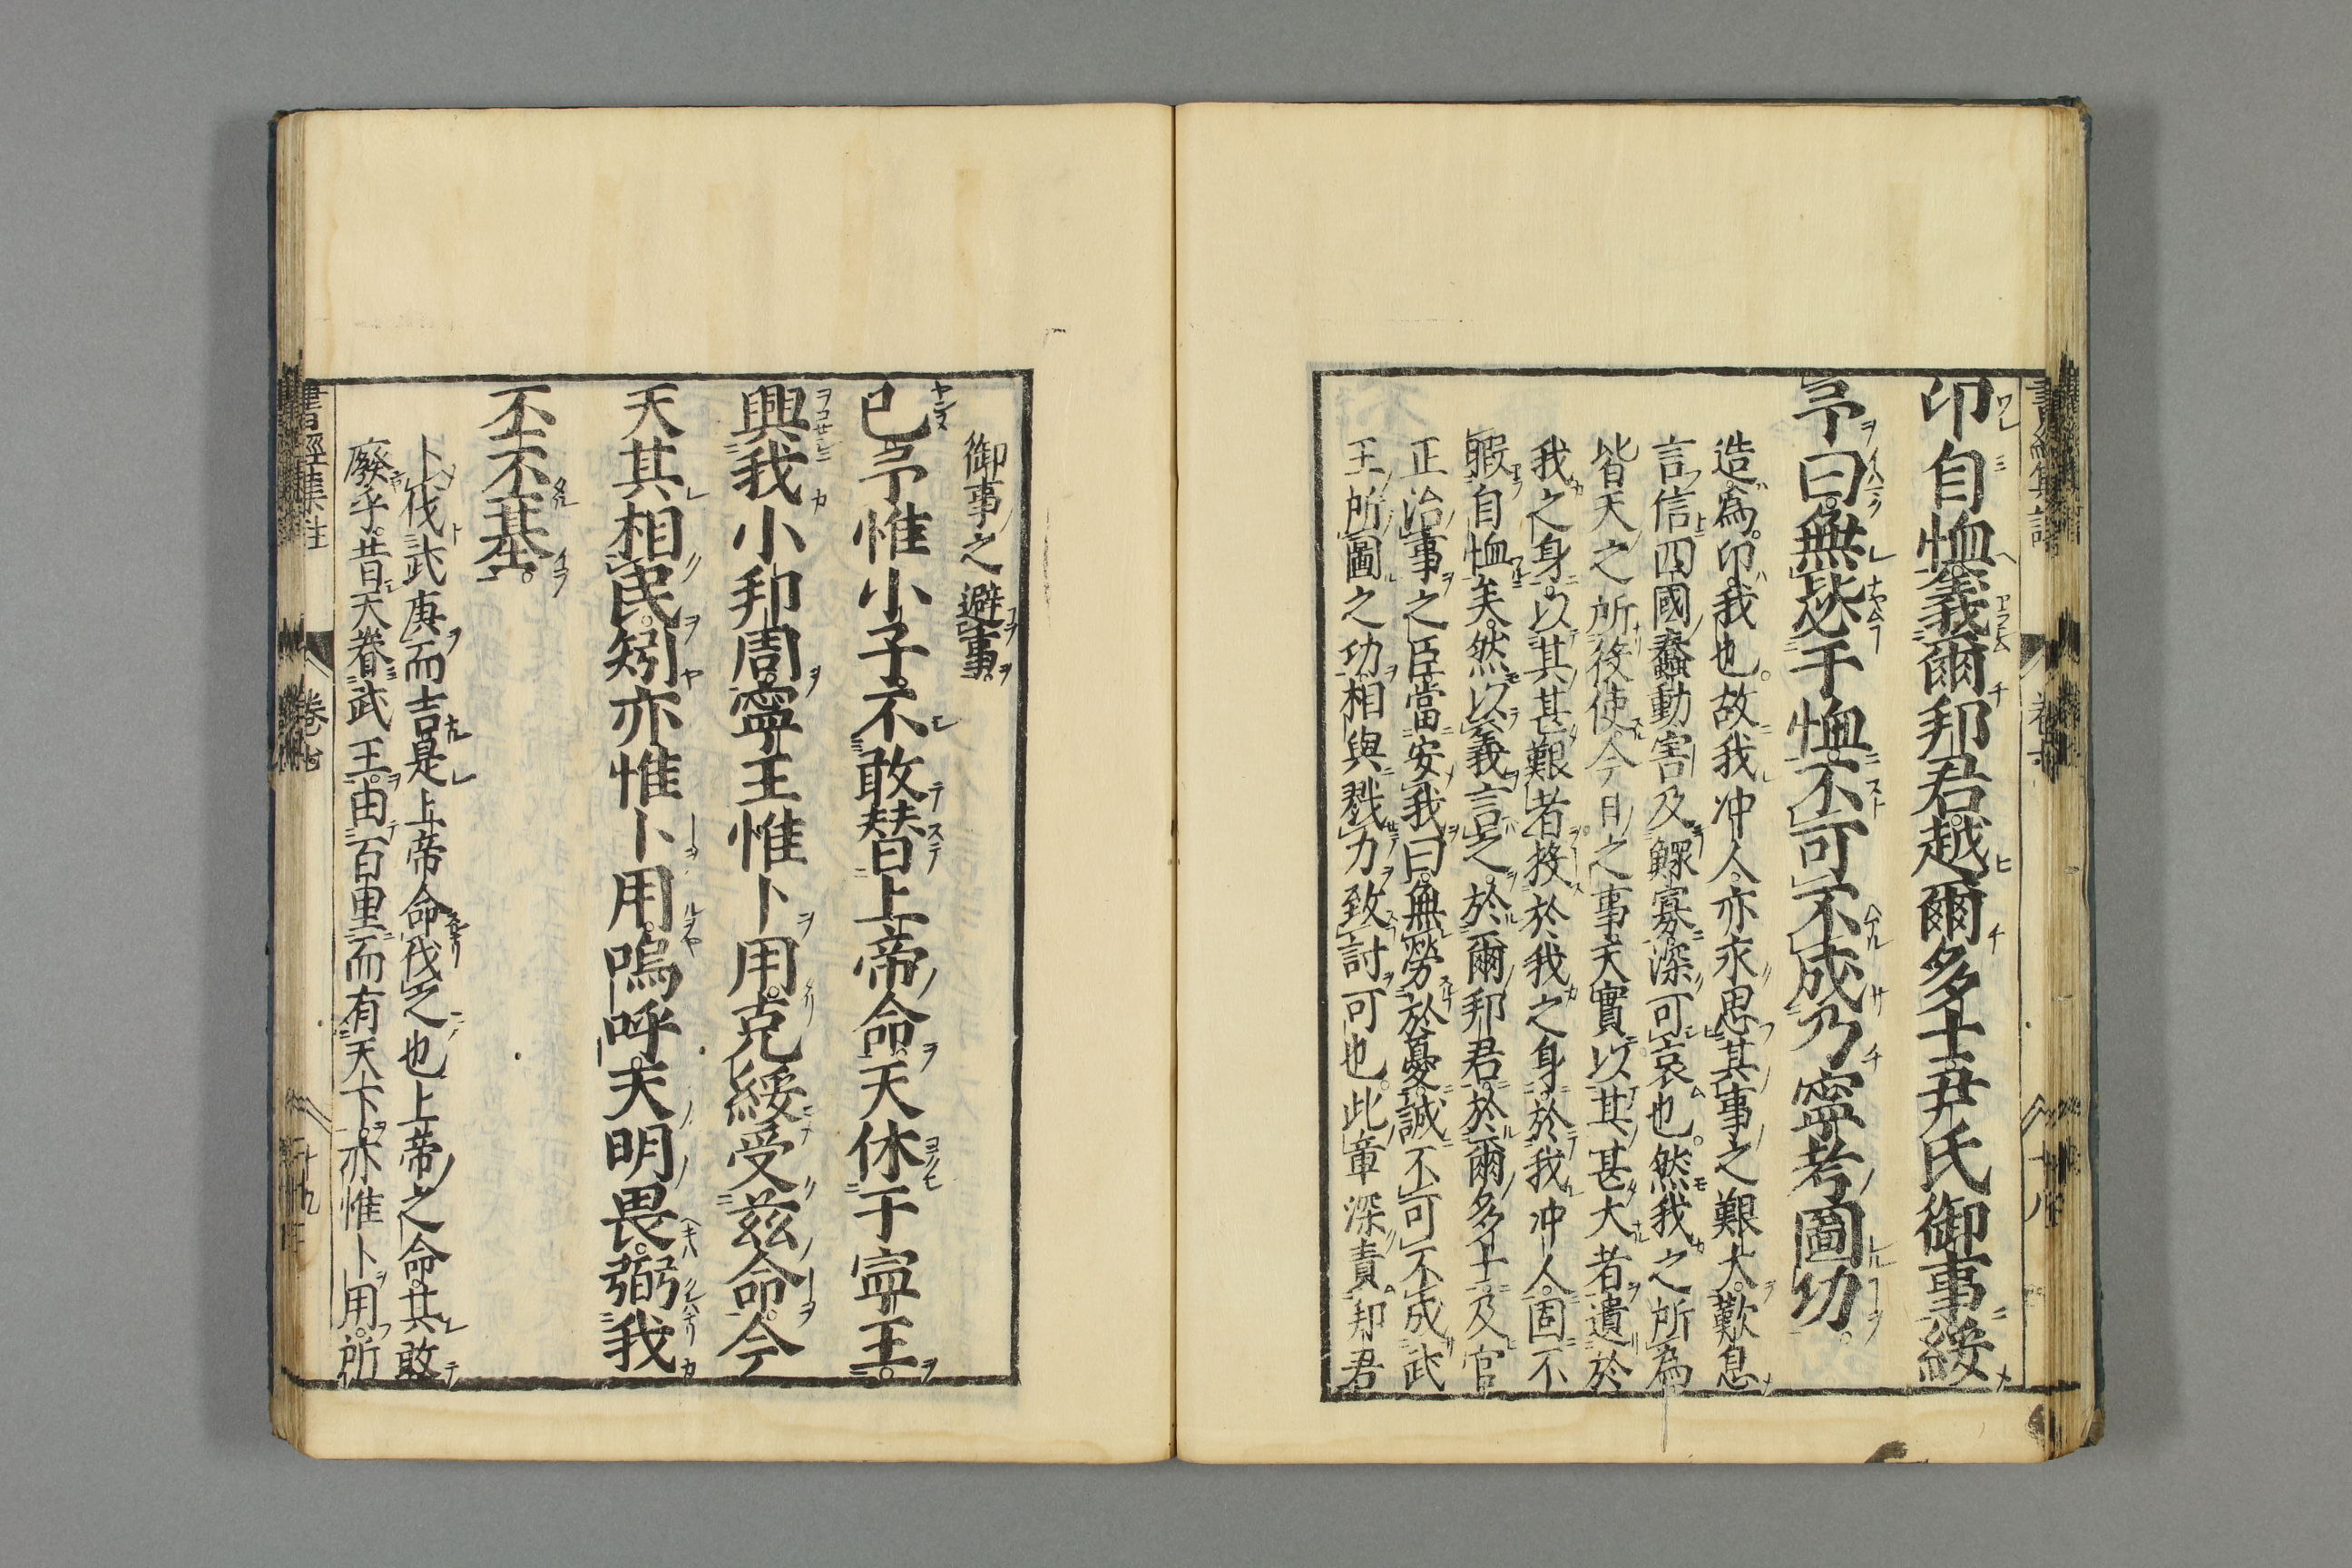 卬自恤義爾邦君越爾多士尹氏御事綏
予曰無毖于恤不可不成乃寧考圖功
造爲卬我也故我冲人亦永思其事之艱大歎息
言信四國蠢動害及鰥寡深可哀也然我之所為
皆天之所役使今日之事天實以其甚大者遺於
我之身以其甚艱者投於我之身於我冲人固不
暇自恤矣然以義言之於爾邦君於爾多士及官
正治事之臣當安我曰無勞於憂誠不可不成武
王所圖之功相與戮力致討可也此章深責邦君
御事之避事
已予惟小子不敢替上帝命天休于寧王
興我小邦周寧王惟卜用克綏受茲命今
天其相民矧亦惟卜用嗚呼天明畏弼我
丕丕基
卜伐武庚而吉是上帝命伐之也上帝之命其敢
廢乎昔天眷武王由百里而有天下亦惟卜用所
書經集註
卷七
十九